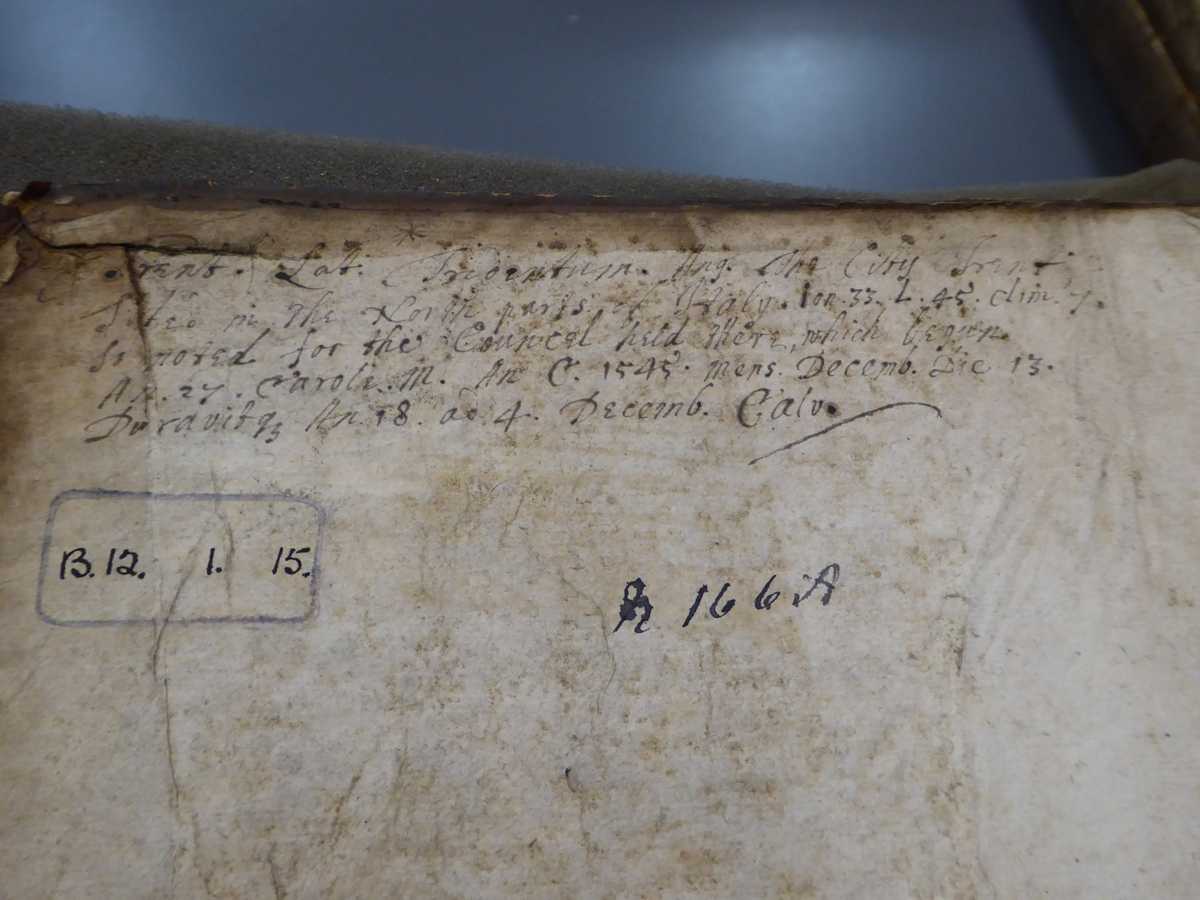 Trent. Lat. Tridentum. Ang. The City Trent
Sited in the North parts of Italy. lon. 33. L. 45. clim. 7.
so noted for the Councel held there, which begun
An. 27. Caroli. M. An C. 1545. mens. Decemb. Die 13.
Duravitq3 An. 18. ad. 4. Decemb. Calv.
B. 12. 1. 15.
166 A